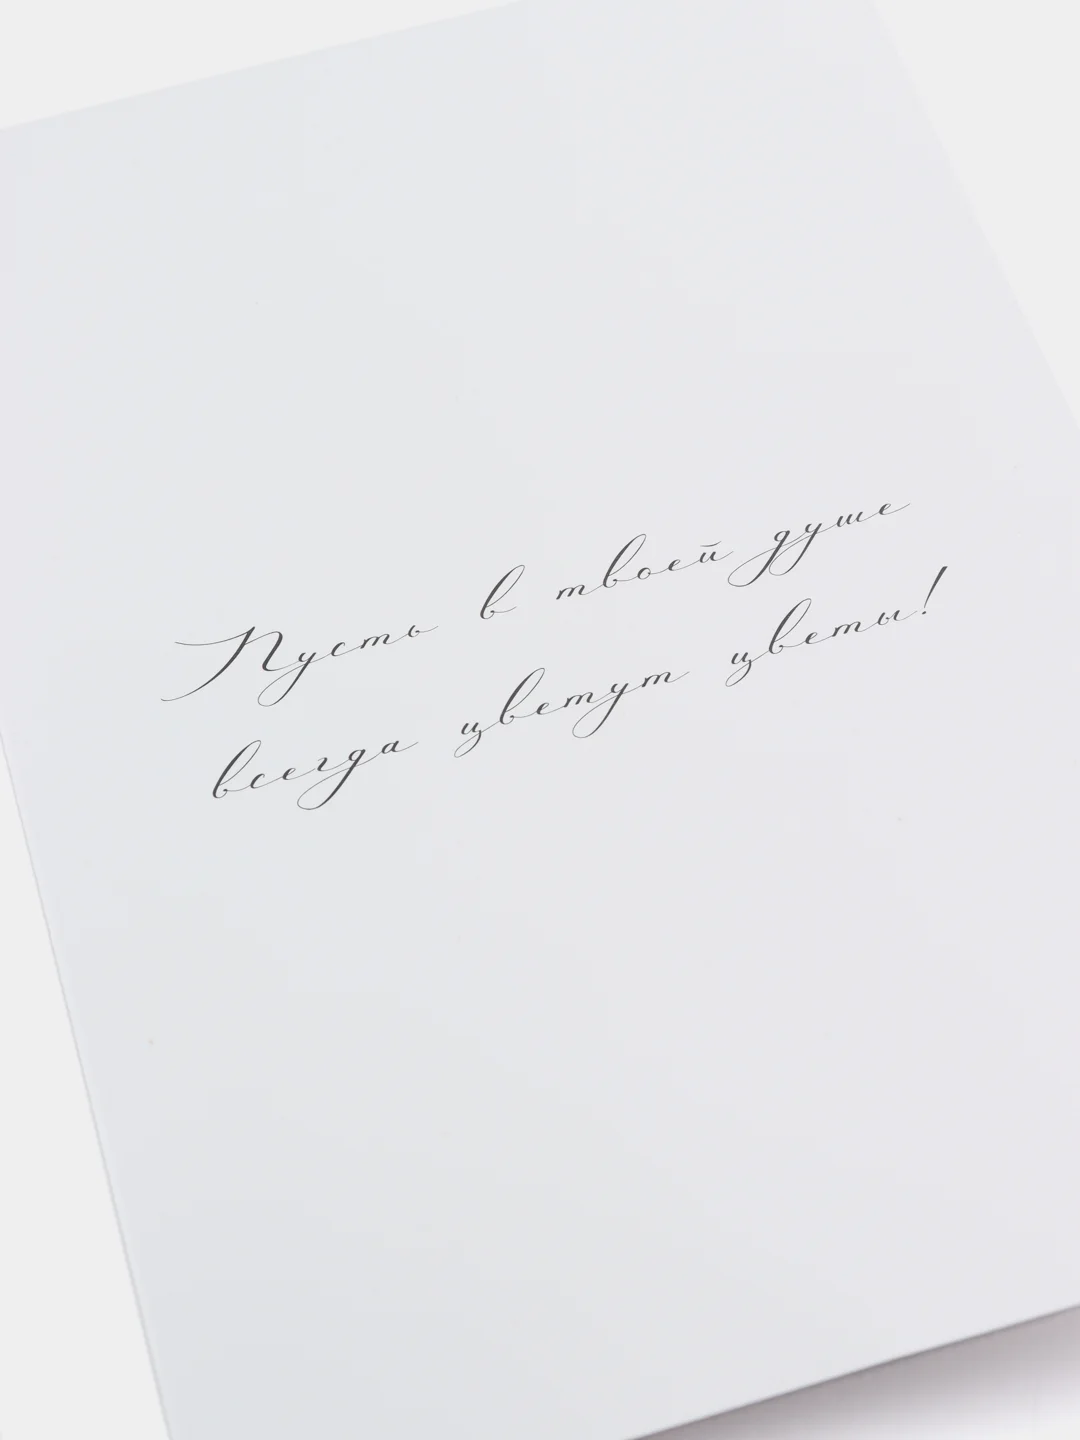 Пусть в твоей душе
всегда цветут цветы!